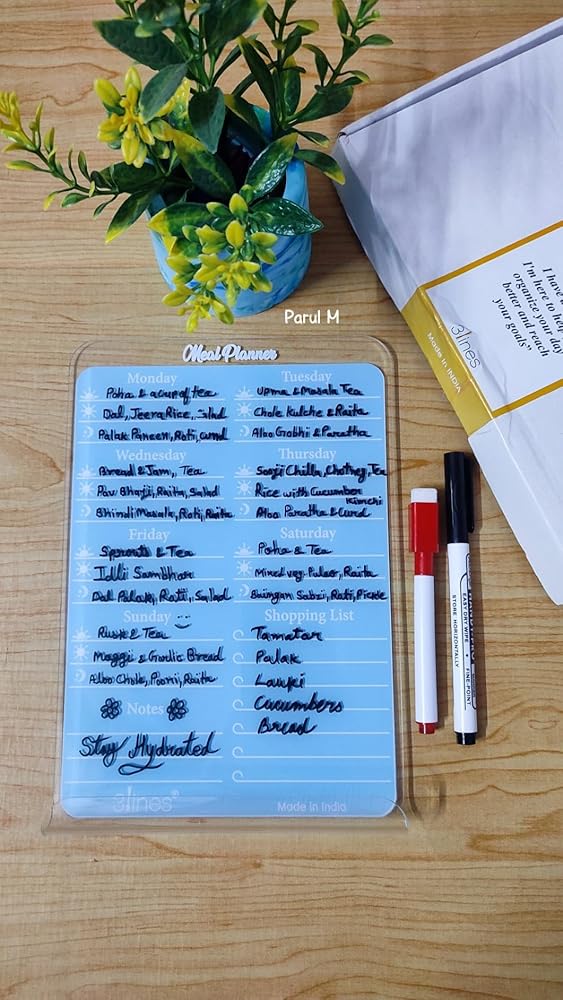 Parul M
I have
I'm here to help
organize your day
better and reach
your goals"
3lines
Made in INDIA
Meal Planner
Monday
Poha & a cup of tea
Dal, Jeera Rice, Salad
Palak Paneer, Roti, curd
Tuesday
Upma & Masala Tea
Chole Kulche & Raita
Aloo Gobhi & Paratha
Wednesday
Bread & Jam, Tea
Pav Bhaji, Raita, Salad
Bhindi Masala, Roti, Raita
Thursday
Sooji Chilla, Chutney, Tea
Rice with Cucumber
Kimchi
Aloo Paratha & Curd
Friday
Sprouts & Tea
Idli Sambhar
Dal Palak, Roti, Salad
Saturday
Poha & Tea
Mixed veg. Pulao, Raita
Baingan Sabzi, Roti, Pickle
Sunday
Rusk & Tea
Maggi & Garlic Bread
Aloo Chole, Poori, Raita
Shopping List
Tamatar
Palak
Lauki
Cucumbers
Bread
Notes
Stay Hydrated
3lines®
Made in India
STORE HORIZONTALLY
EASY DRY WIPE • FINE-POINT